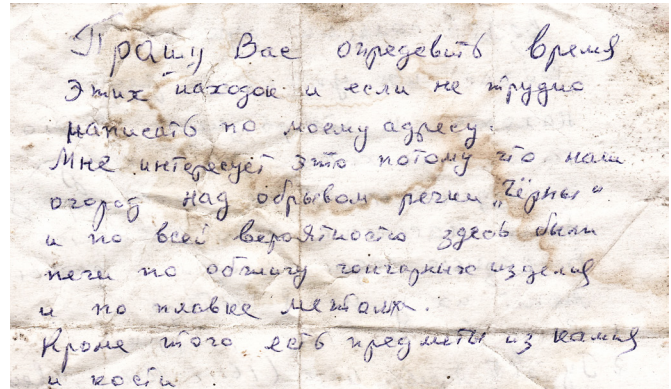 Прашу Вас опредевить время
этих находок и если не трудно
написать по моему адресу.
Мне интересует это потому что наш
огород над обрывом речки „Чёрны“
и по всей вероятностю здесь были
печи по обжигу гончарных изделия
и по плавке металла.
Кроме того есть предметы из камня
и кости.